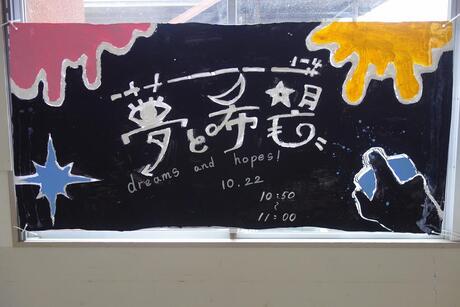 夢と希望
dreams and hopes!
10.22
10:50
~
11:00